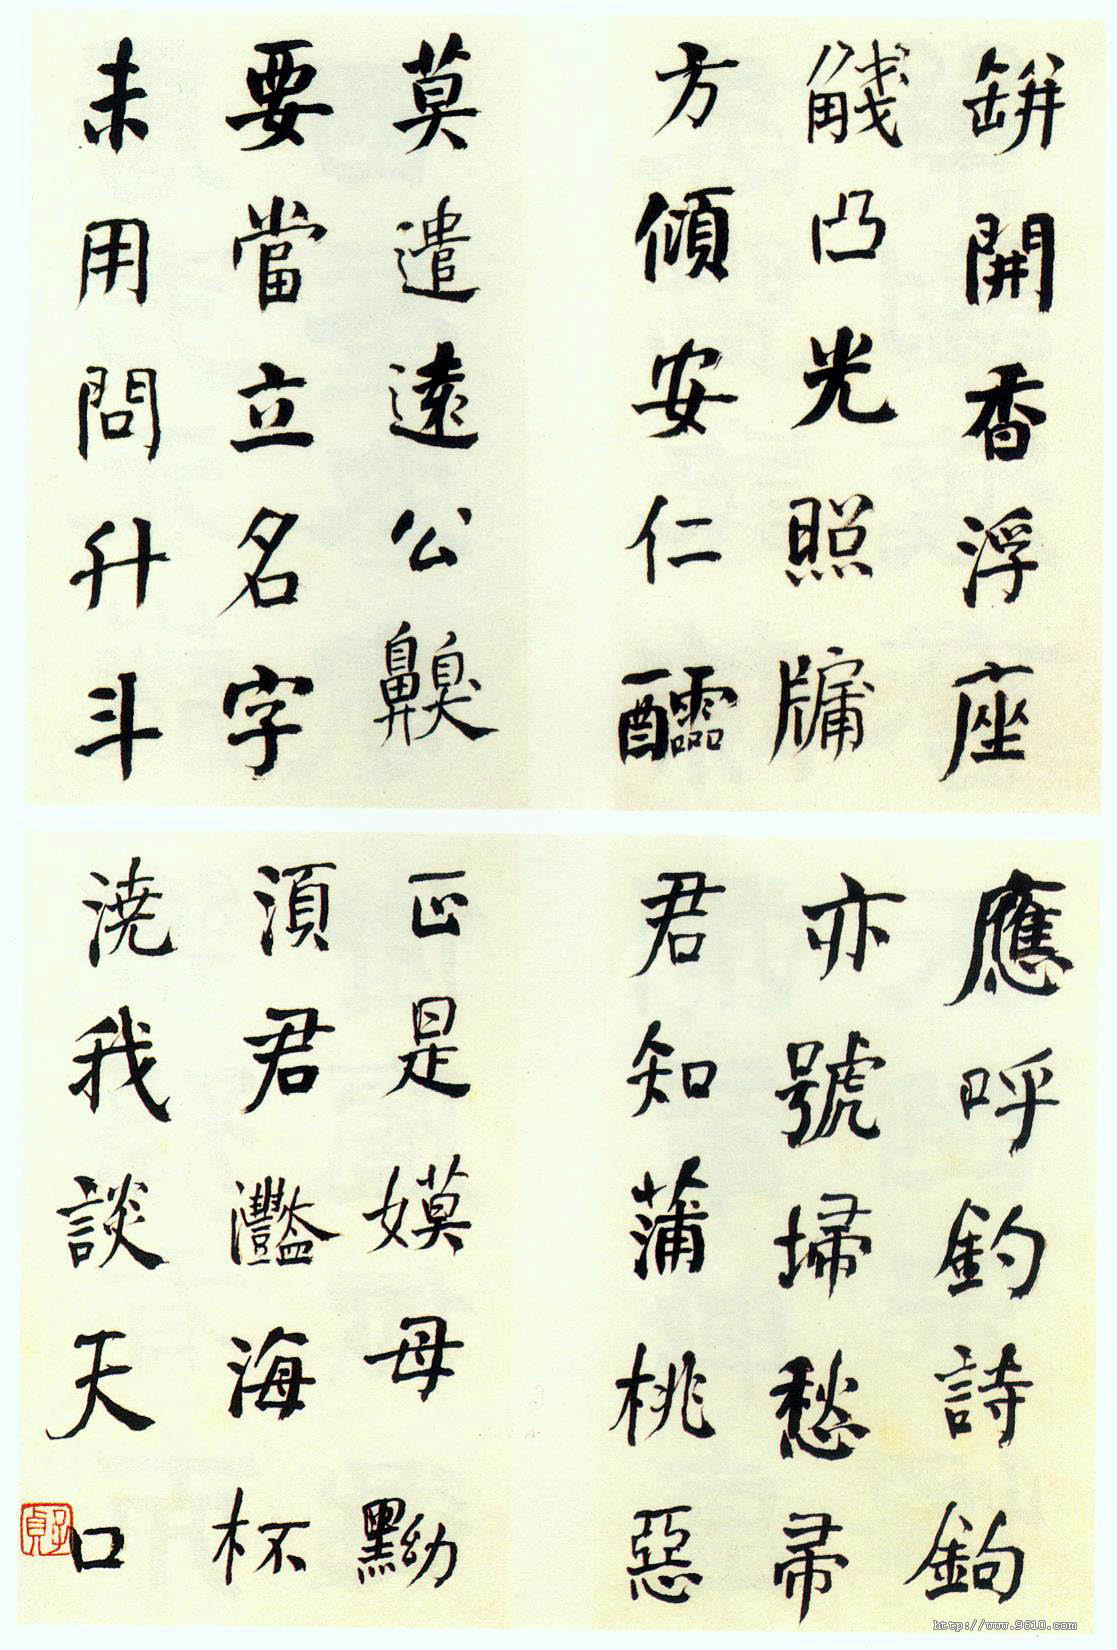 缾開香浮座
䚈凸光照牖
方傾安仁醽
莫遣遠公齅
要當立名字
未用問升斗
應呼釣詩鉤
亦號掃愁帚
君知蒲桃惡
正是嫫母黝
湏君灩海杯
澆我談天口
子貞
http://www.9610.com